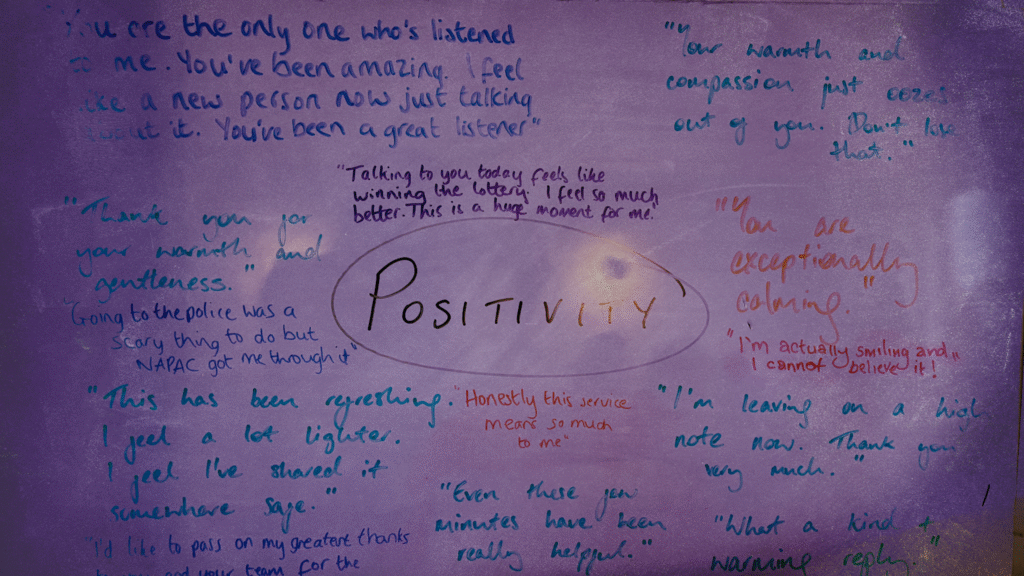 You are the only one who's listened
to me. You've been amazing. I feel
like a new person now just talking
about it. You've been a great listener"
"Your warmth and
compassion just oozes
out of you. Don't lose
that."
"Talking to you today feels like
winning the lottery. I feel so much
better. This is a huge moment for me."
"Thank you for
your warmth and
gentleness."
"You are
exceptionally
calming."
POSITIVITY
"Going to the police was a
scary thing to do but
NAPAC got me through it"
"I'm actually smiling and
I cannot believe it!"
"This has been refreshing.
I feel a lot lighter.
I feel I've shared it
somewhere safe."
"Honestly this service
means so much
to me"
"I'm leaving on a high
note now. Thank you
very much."
"Even these few
minutes have been
really helpful."
"What a kind +
warming reply."
"I'd like to pass on my greatest thanks
and your team for the